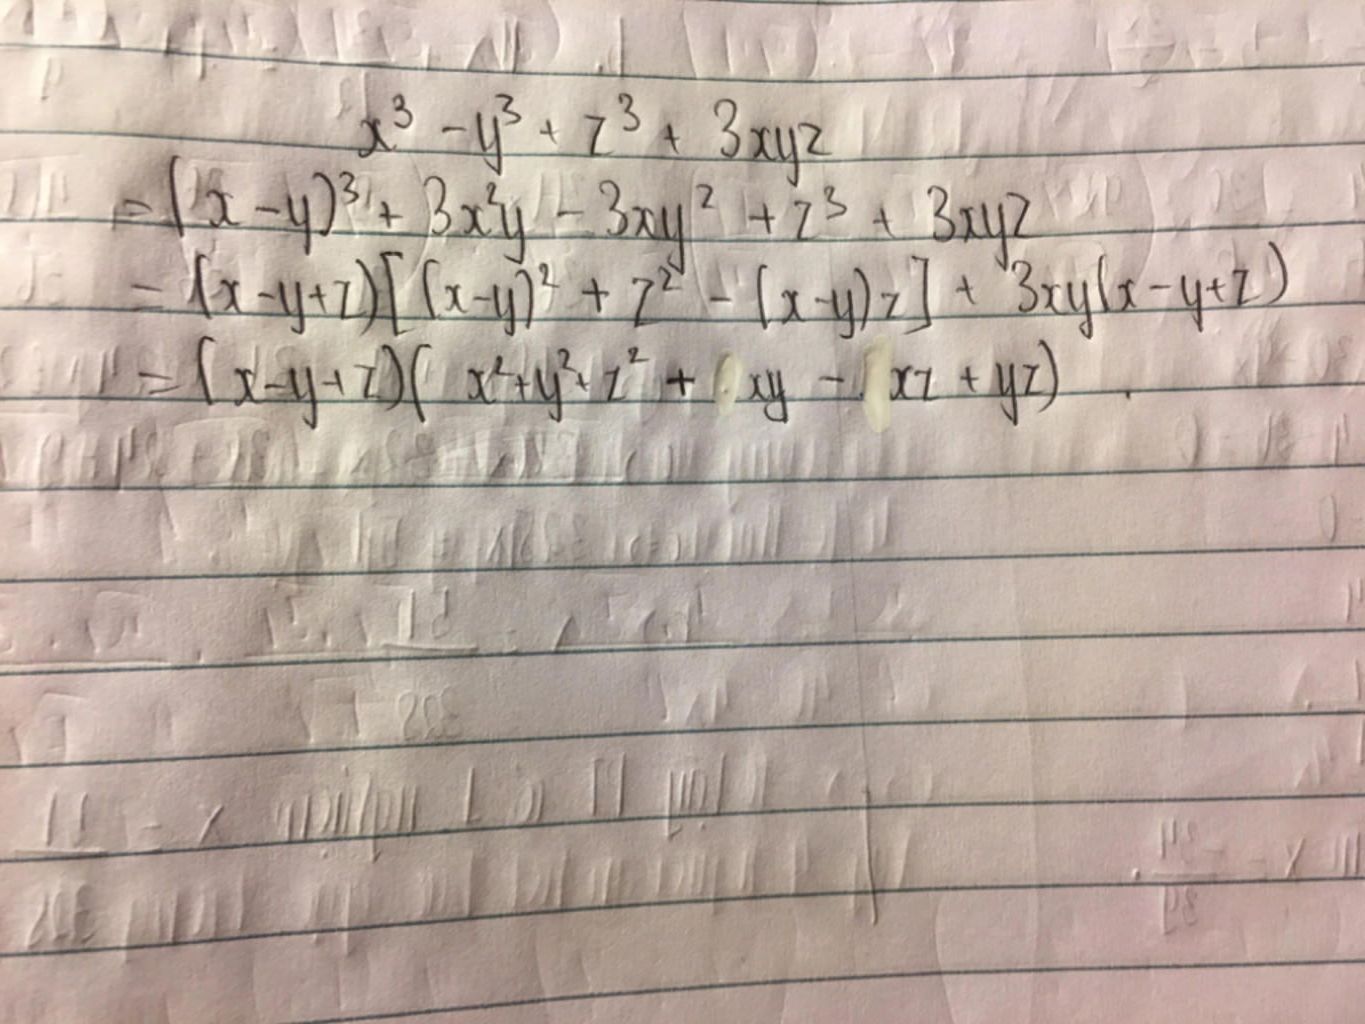 x³ - y³ + z³ + 3xyz
= (x - y)³ + 3x²y - 3xy² + z³ + 3xyz
= (x - y + z)[(x - y)² + z² - (x - y)z] + 3xy(x - y + z)
= (x - y + z)(x² + y² + z² + xy - xz + yz)